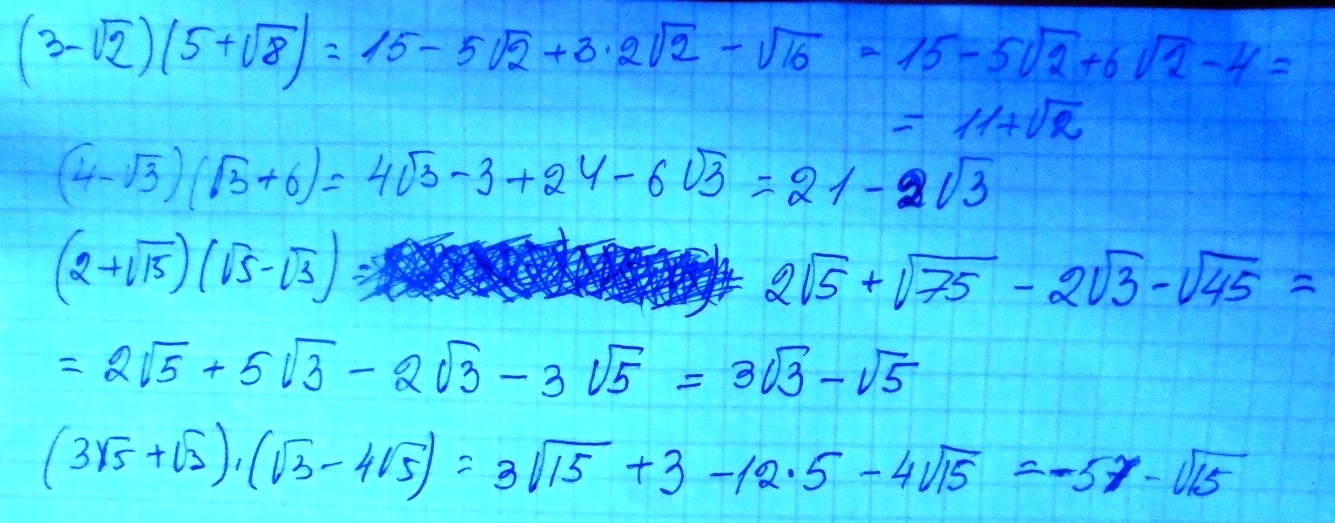 (3-√2)(5+√8) = 15 - 5√2 + 3·2√2 - √16 = 15 - 5√2 + 6√2 - 4 =
= 11 + √2
(4-√3)(√3+6) = 4√3 - 3 + 24 - 6√3 = 21 - 2√3
(2+√15)(√5-√3) = 2√5 + √75 - 2√3 - √45 =
= 2√5 + 5√3 - 2√3 - 3√5 = 3√3 - √5
(3√5+√3)·(√3-4√5) = 3√15 + 3 - 12·5 - 4√15 = -57 - √15